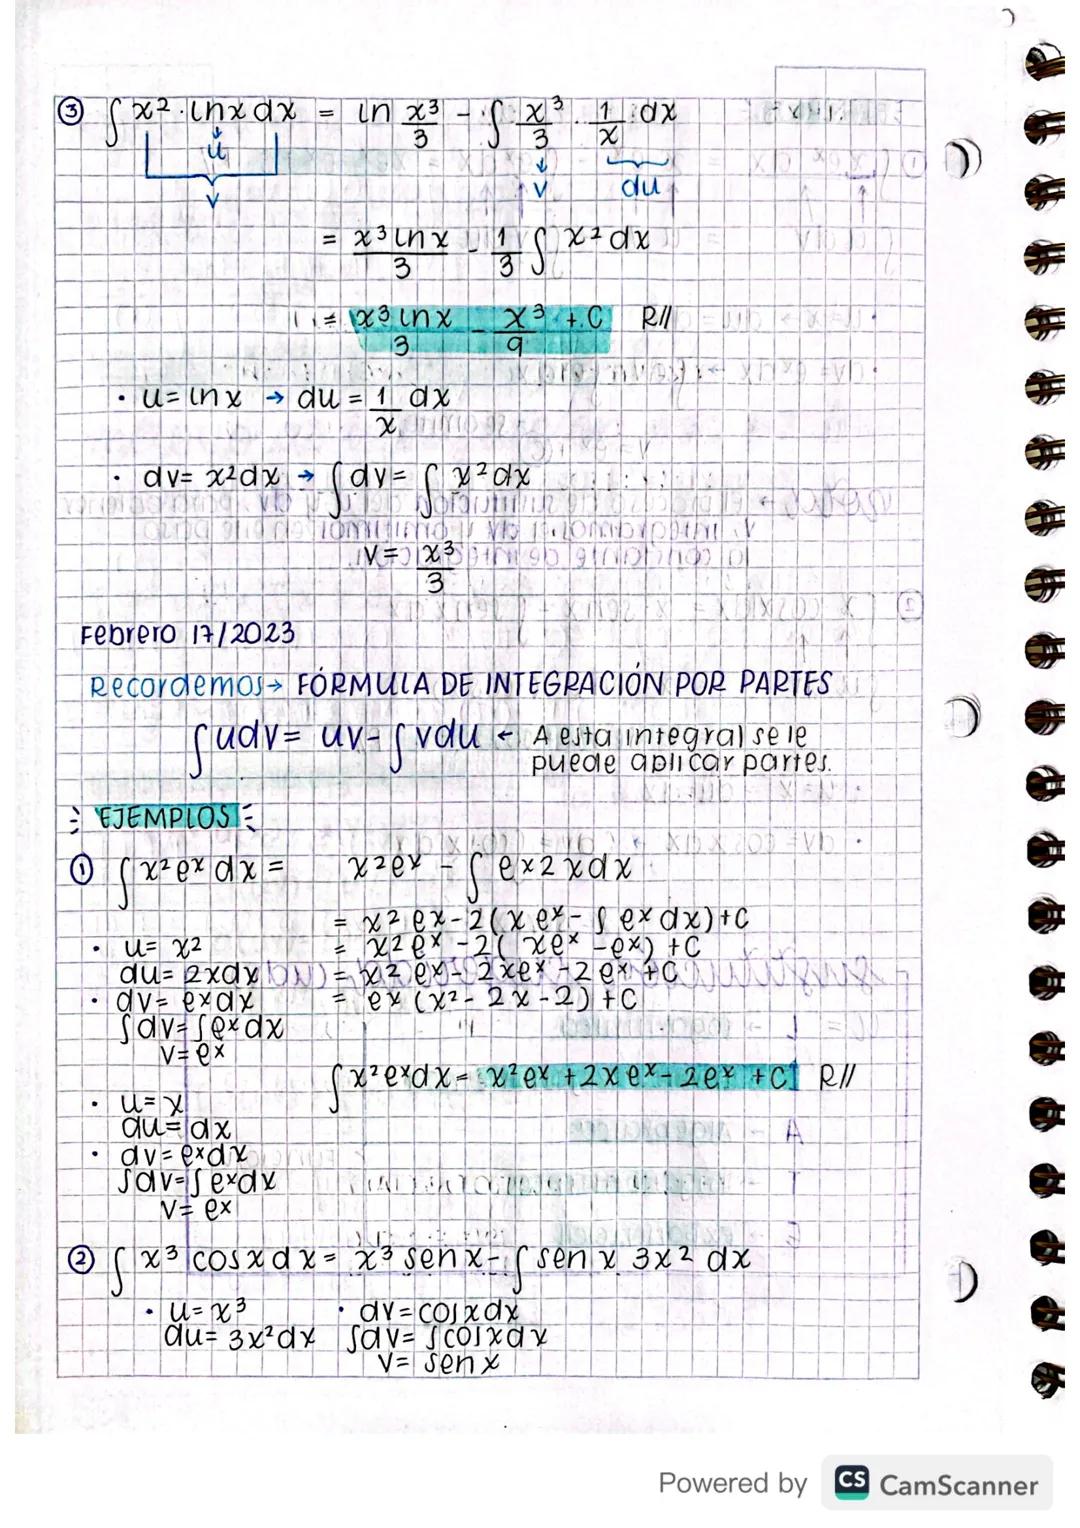 ③ ∫ x² · lnx dx = ln x³/3 - ∫ x³/3 · 1/x dx
u
v
v du
= x³ ln x/3 - 1/3 ∫ x² dx
= x³ ln x/3 - x³/9 + C R//
• u = ln x → du = 1/x dx
• dv = x²dx → ∫ dv = ∫ x² dx
v = x³/3
Febrero 17/2023
Recordemos → FÓRMULA DE INTEGRACIÓN POR PARTES
∫ udv = uv - ∫ vdu ← A esta integral se le
puede aplicar partes.
EJEMPLOS
① ∫ x²eˣ dx = x²eˣ - ∫ eˣ2xdx
= x² eˣ - 2(x eˣ - ∫ eˣ dx) + C
• u = x²
= x² eˣ - 2( xeˣ - eˣ) + C
du = 2xdx
= x² eˣ - 2xeˣ - 2eˣ + C
• dv = eˣdx
= eˣ (x² - 2x - 2) + C
∫dv = ∫eˣdx
v = eˣ
∫ x²eˣdx = x²eˣ + 2xeˣ - 2eˣ + C R//
• u = x
du = dx
• dv = eˣdx
∫dv = ∫ eˣdx
v = eˣ
② ∫ x³ cosxdx = x³ sen x - ∫ sen x 3x² dx
• u = x³ • dv = cosxdx
du = 3x²dx ∫dv = ∫cosxdx
v = sen x
Powered by CS CamScanner